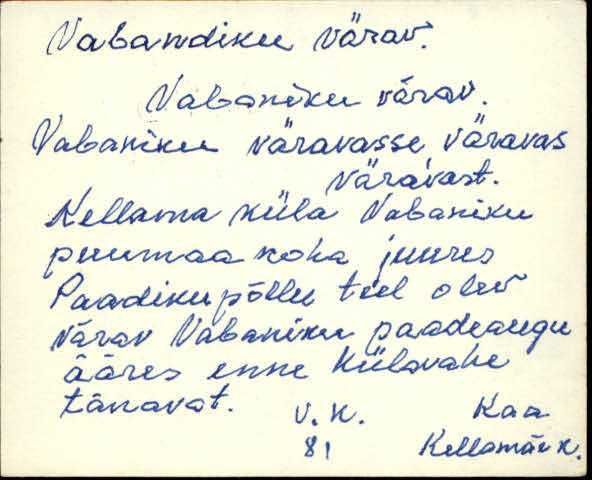 Vabandiku värav.
Vabaniku värav.
Vabaniku väravasse väravas
väravast.
Kellama küla Vabaniku
puumaa koha juures
Paadikupõllu teel olev
värav Vabaniku paadeaugu
ääres enne Külavahe
tänavat.
V. K. Kaa
81 Kellamäe k.